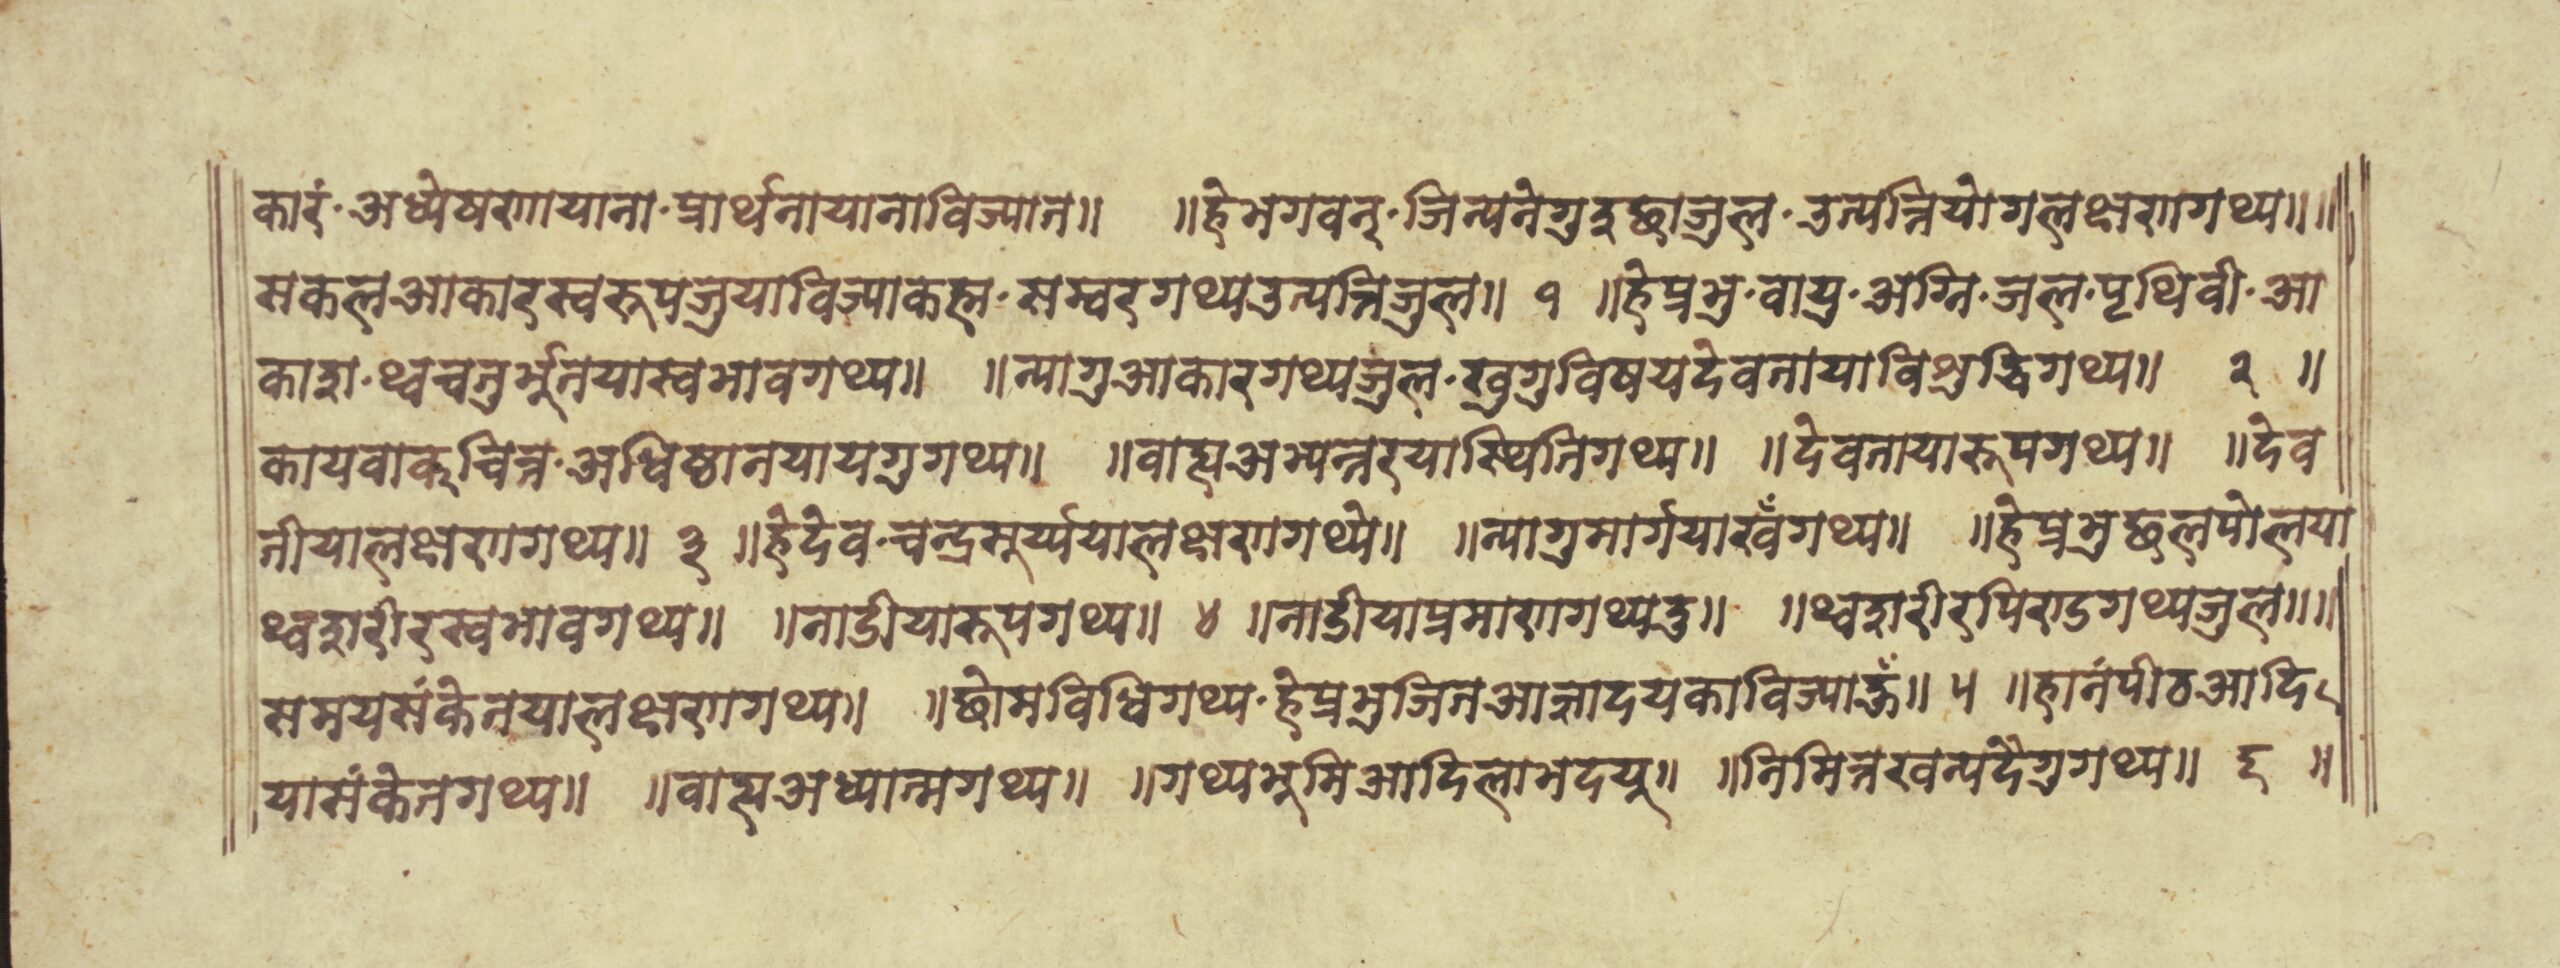 कारं·अध्येषणायाना·प्रार्थनायानाविज्यात॥ ॥हेभगवन्·जित्पनेगुइछाजुल·उत्पत्तियोगलक्षणगथ्य॥॥
सकलआकारस्वरूपजुयाविज्याकह्म·सम्वरगथ्यउत्पत्तिजुल॥ १ ॥हेप्रभु·वायु·अग्नि·जल·पृथिवी·आ
काश·थ्वचतुर्भूतयास्वभावगथ्य॥ ॥न्यागुआकारगथ्यजुल·खुगुविषयदेवतायाविशुद्धिगथ्य॥ २ ॥
कायवाक्चित्त·अधिष्ठानयायगुगथ्य॥ ॥वाह्यअभ्यन्तरयास्थितिगथ्य॥ ॥देवतायारूपगथ्य॥ ॥देव
तीयालक्षणगथ्य॥ ३ ॥हेदेव·चन्द्रसूर्य्ययालक्षणगथ्ये॥ ॥न्यागुमार्गयाखँगथ्य॥ ॥हेप्रभुछलपोलया
थ्वशरीरस्वभावगथ्य॥ ॥नाडीयारूपगथ्य॥ ४ ॥नाडीयाप्रमाणगथ्यदु॥ ॥थ्वशरीरपिण्डगथ्यजुल॥॥
समयसंकेतयालक्षणगथ्य॥ ॥छोमविधिगथ्य·हेप्रभुजितआज्ञादयकाविज्याऊँ॥ ५ ॥हानंपीठआदि
यासंकेतगथ्य॥ ॥वाह्यअध्यात्मगथ्य॥ ॥गथ्यभूमिआदिलाभदयू॥ ॥निमित्तखन्यदैगुगथ्य॥ ६ ॥